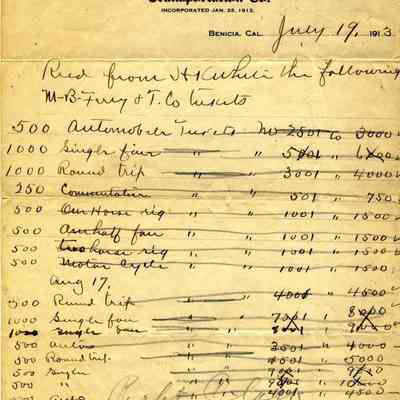 Transportation Co.
INCORPORATED JAN. 25, 1912.
BENICIA, CAL. July 19, 1913
Recd from H K White the following
M-B-Ferry & T. Co Tickets
500 Automobile Tickets No 2501 to 3000
1000 Single fair " " 5001 " 6000
1000 Round trip " 3001 " 4000
250 Commutation " " 501 " 750
500 One Horse rig " " 1001 " 1500
500 One half fair " " 1001 " 1500
500 two horse rig " " 1001 " 1500
500 Motor Cycle " " 1001 " 1500
Aug 17,
500 Round trip " " 4000 " 4500
1000 Single fair " " 7001 " 8000
1000 Single fare " " 8001 " 9000
500 Auto " " 3501 " 4000
500 Round trip. " " 4501 " 5000
500 Single " " 9001 "
500 " " "
Auto " 4001 " 4500